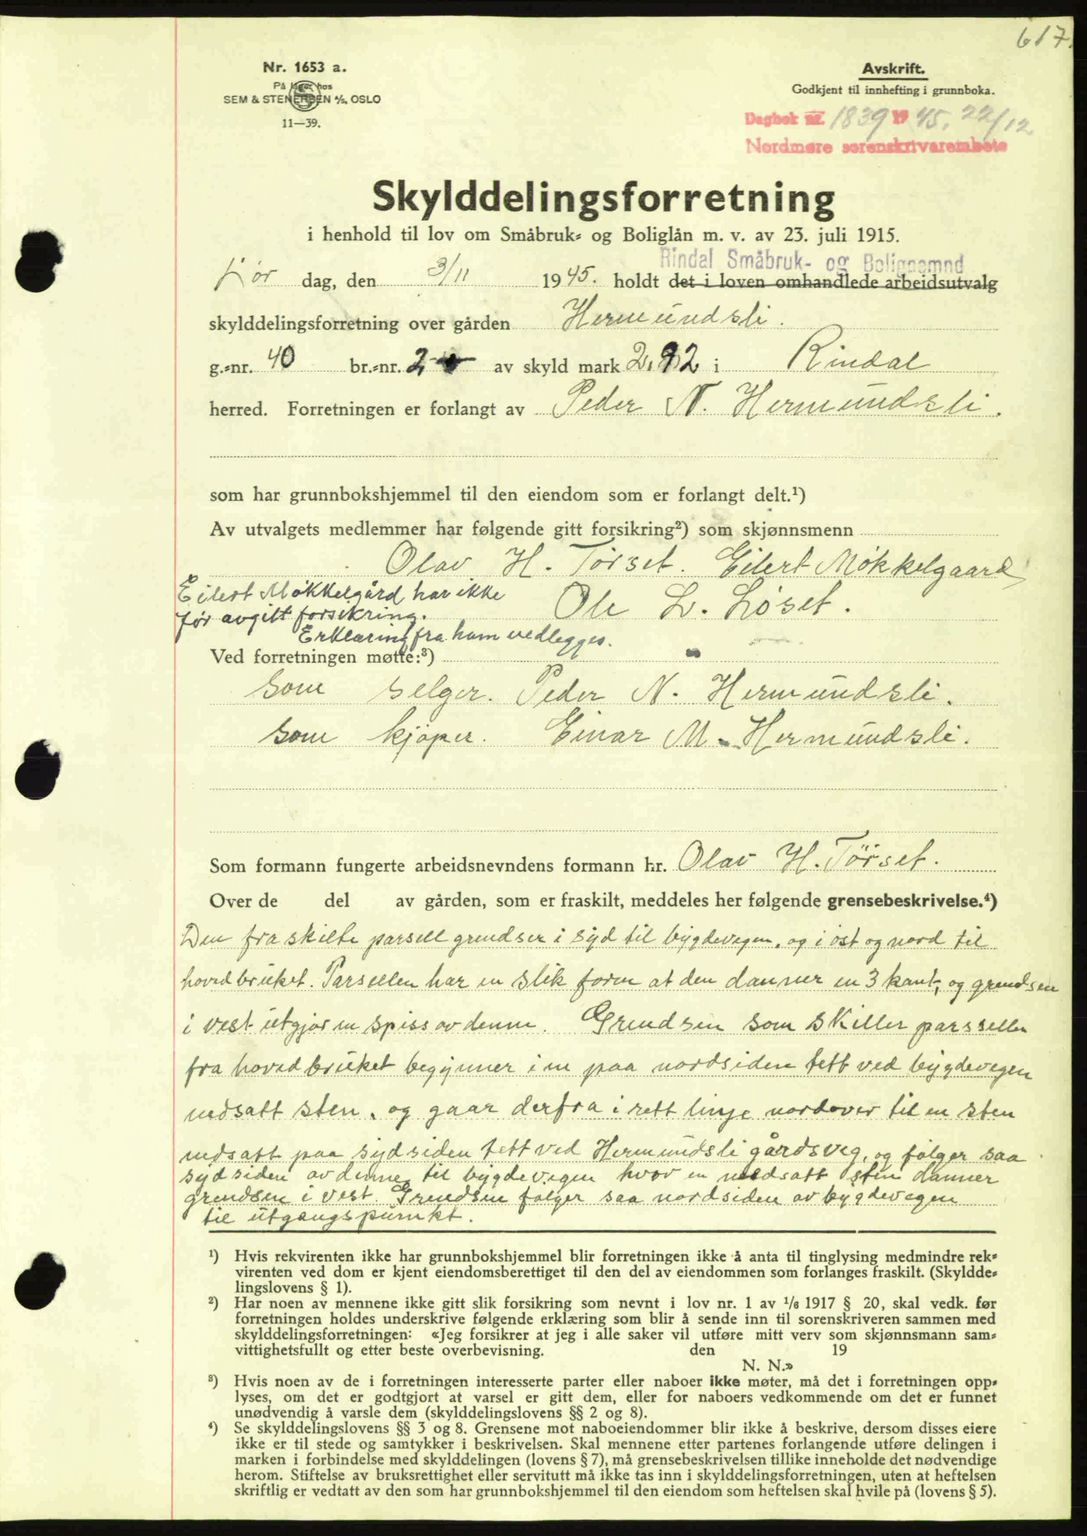 617.
Nr. 1653 a.
På lager hos
SEM & STENERSEN A/S, OSLO
11—39.
Avskrift.
Godkjent til innhefting i grunnboka.
Dagbok nr. 1839 19 45, 22/12
Nordmøre sorenskrivarembete
Skylddelingsforretning
i henhold til lov om Småbruk- og Boliglån m. v. av 23. juli 1915.
Rindal Småbruk- og Bolignemnd
Lør dag, den 3/11 1945. holdt det i loven omhandlede arbeidsutvalg
skylddelingsforretning over gården Hermundsli.
g.-nr. 40 br.-nr. 2 av skyld mark 2,92 i Rindal
herred. Forretningen er forlangt av Peder N. Hermundsli.
som har grunnbokshjemmel til den eiendom som er forlangt delt.¹)
Av utvalgets medlemmer har følgende gitt forsikring²) som skjønnsmenn
Olav H. Tørset. Eilert Møkkelgaard,
Eilert Møkkelgård har ikke Ole L. Løset.
før avgitt forsikring.
Erklæring fra ham vedlegges.
Ved forretningen møtte:³)
Som selger. Peder N. Hermundsli.
Som kjøper. Einar M. Hermundsli.
Som formann fungerte arbeidsnevndens formann hr. Olav H. Tørset.
Over de del av gården, som er fraskilt, meddeles her følgende grensebeskrivelse.⁴)
Den fraskilte parsell grendser i syd til bygdevegen, og i øst og nord til
hovedbruket. Parsellen har en slik form at den danner en 3 kant, og grendsen
i vest utgjør en spiss av denne. Grendsen som skiller parsellen
fra hovedbruket begynner i en paa nordsiden tett ved bygdevegen
nedsatt sten, og gaar derfra i rett linje nordover til en sten
nedsatt paa sydsiden tett ved Hermundsli gårdsveg, og følger saa
sydsiden av denne til bygdevegen hvor en nedsatt sten danner
grendsen i vest. Grendsen følger saa nordsiden av bygdevegen
til utgangspunkt.
¹) Hvis rekvirenten ikke har grunnbokshjemmel blir forretningen ikke å anta til tinglysing medmindre rek-
virenten ved dom er kjent eiendomsberettiget til den del av eiendommen som forlanges fraskilt. (Skyldde-
lingslovens § 1).
²) Har noen av mennene ikke gitt slik forsikring som nevnt i lov nr. 1 av 1/6 1917 § 20, skal vedk. før
forretningen holdes underskrive følgende erklæring som blir å sende inn til sorenskriveren sammen med
skylddelingsforretningen: «Jeg forsikrer at jeg i alle saker vil utføre mitt verv som skjønnsmann sam-
vittighetsfullt og etter beste overbevisning. den 19
N. N.»
³) Hvis noen av de i forretningen interesserte parter eller naboer ikke møter, må det i forretningen opp-
lyses, om det er godtgjort at varsel er gitt dem, eller for naboers vedkommende om det er funnet
unødvendig å varsle dem (skylddelingslovens §§ 2 og 8).
⁴) Se skylddelingslovens §§ 3 og 8. Grensene mot naboeiendommer blir ikke å beskrive, dersom disses eiere
ikke er til stede og samtykker i beskrivelsen. Skal mennene etter partenes forlangende utføre delingen i
marken i forbindelse med skylddelingen (lovens § 7), må grensebeskrivelsen tillike inneholde det nødvendige
herom. Stiftelse av bruksrettighet eller servitutt må ikke tas inn i skylddelingsforretningen, uten at heftelsen
skriftlig er vedtatt av den som har grunnbokshjemmel til den eiendom som heftelsen skal hvile på (lovens § 5).